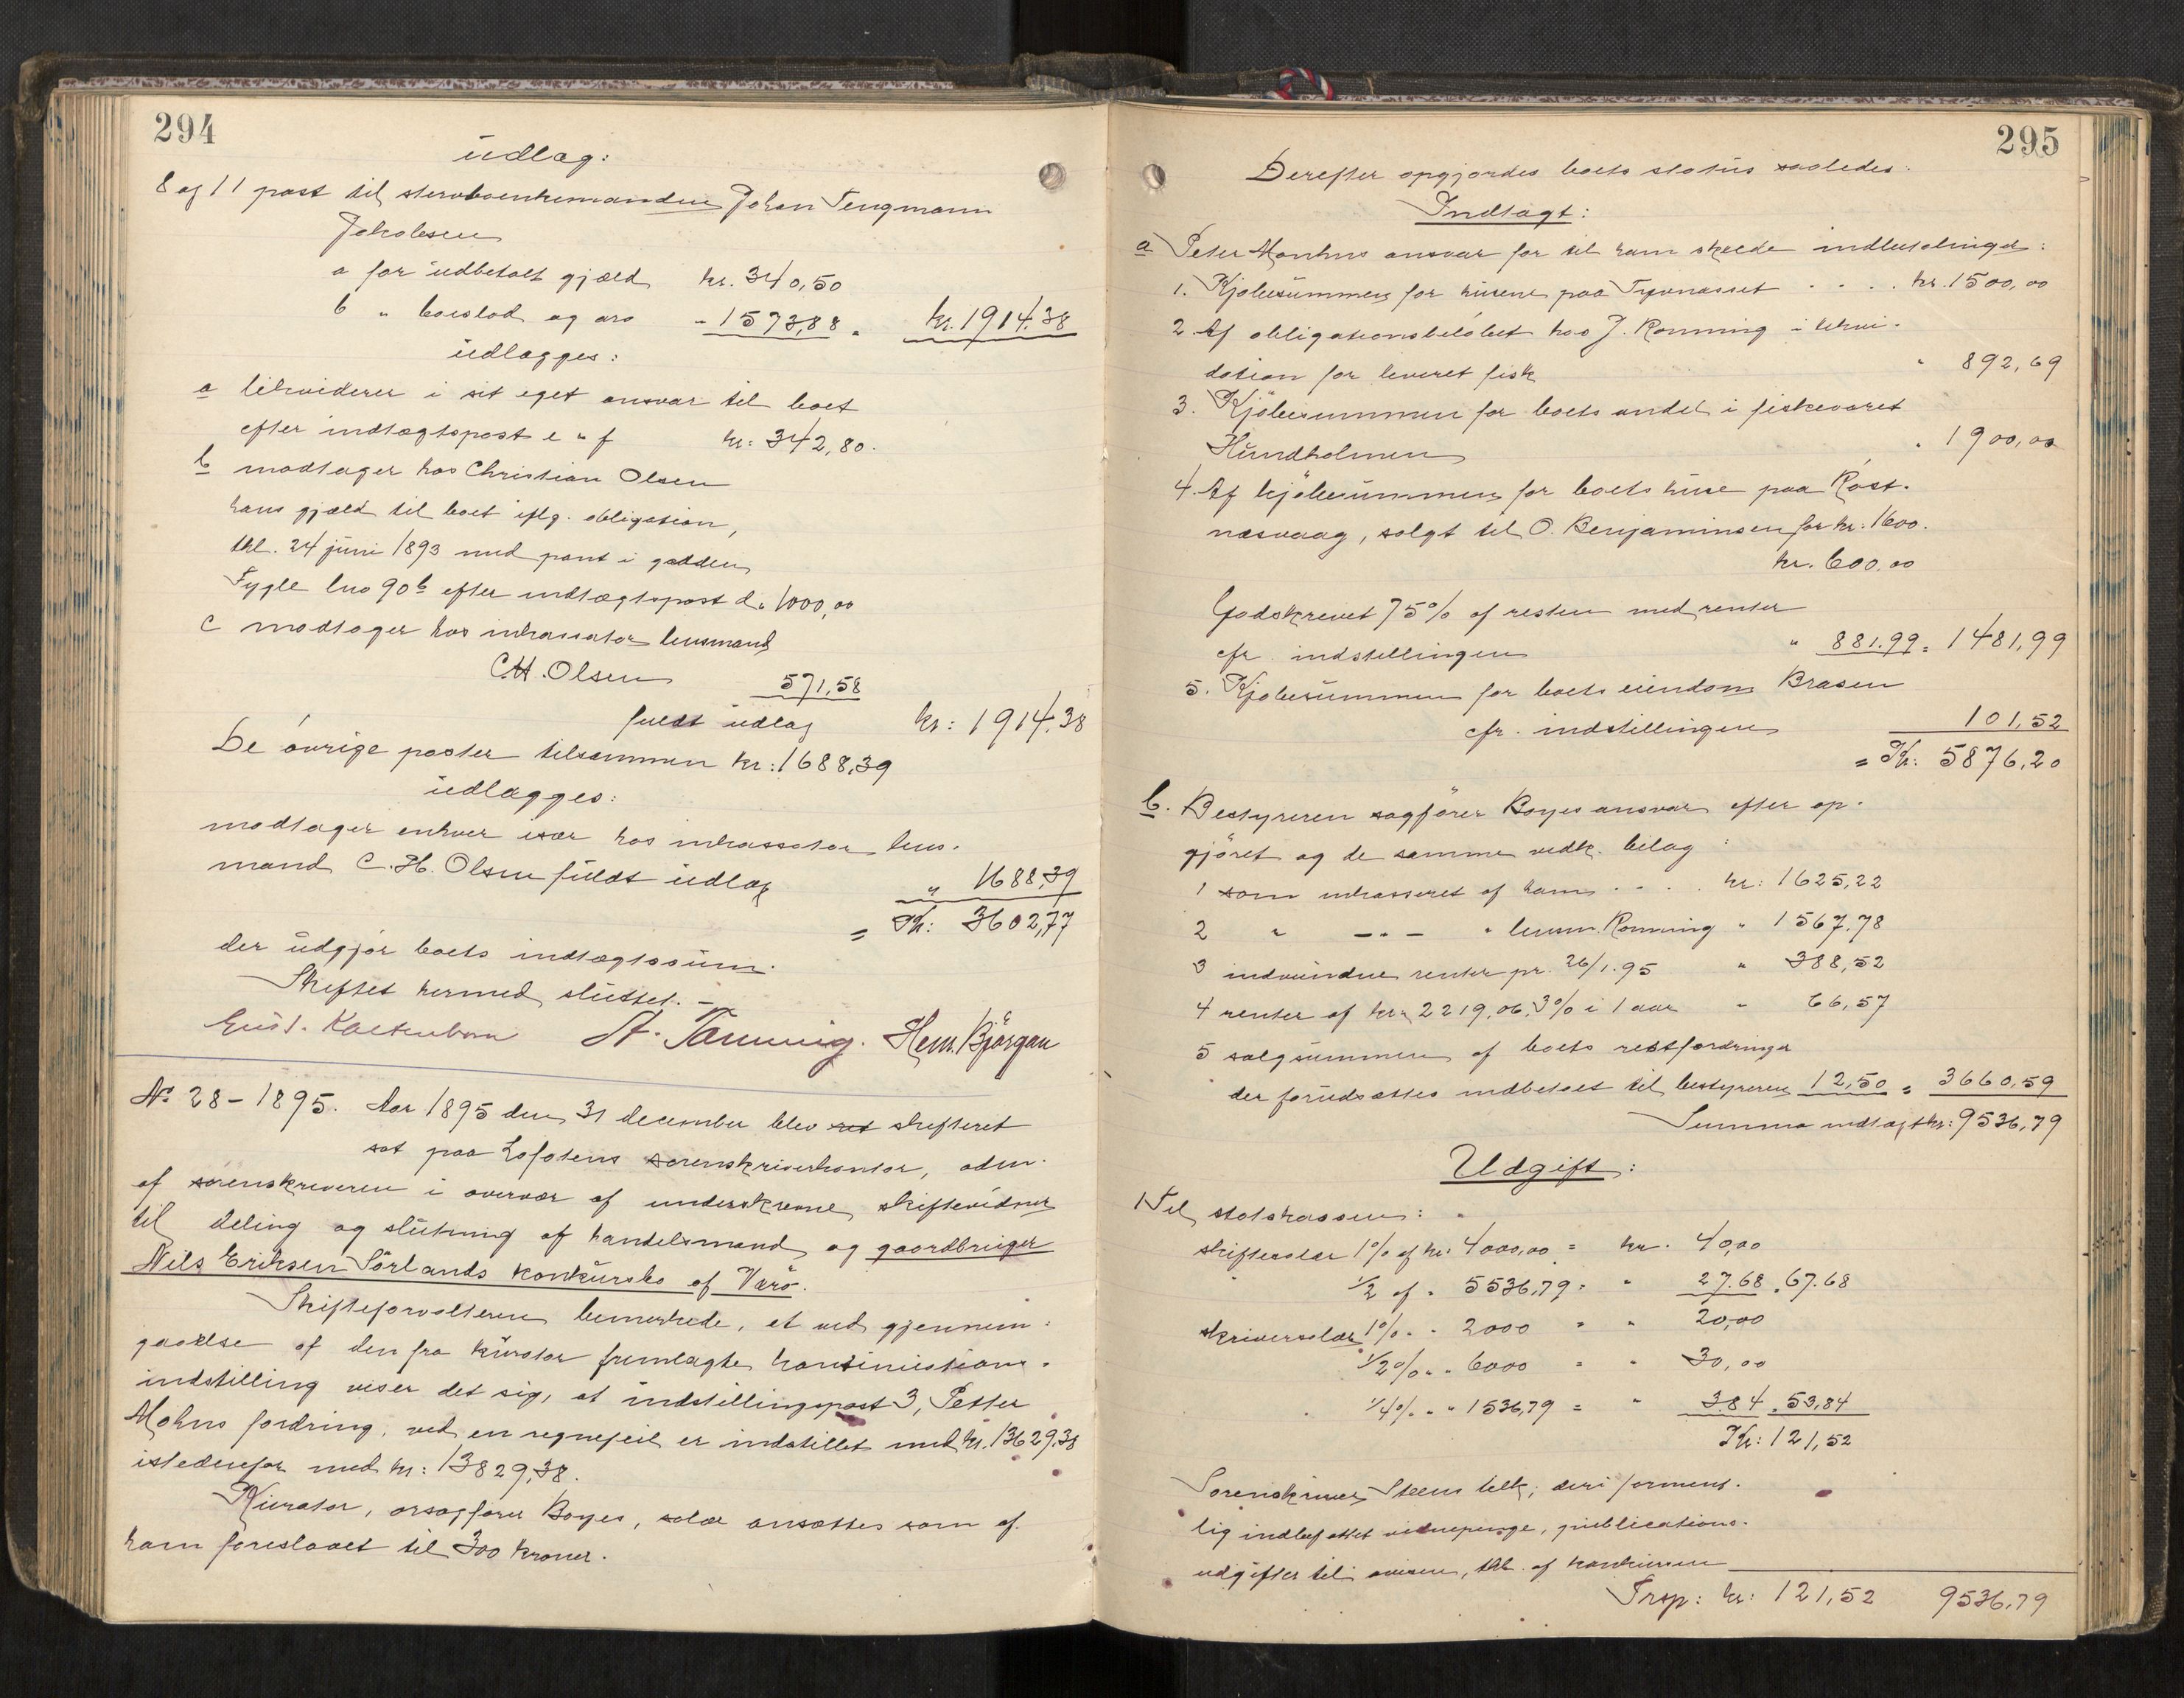 294
üdlæg:
8 og 11 post til sterboenkemanden Johan Tengmann
Jakobsen
a for üdbetalt gjæld kr. 340,50
b " boeslod og arv " 1573,88 = kr. 1914.38
üdlægges:
a likviderer i sit eget ansvar til boet
efter indtægtspost e " f kr: 342,80.
b modtager hos Christian Olsen
hans gjæld til boet iflg. obligation,
thl. 24 jüni 1893 med pant i gaarden
Tygle lno 90b efter indtægtspost d " 1000,00
c modtager hos inkassator lensmand
C.H. Olsen 571,58
füldt üdlæg kr: 1914.38
De övrige poster tilsammen kr: 1688,39
üdlægges:
modtager enhver især hos inkassator lens-
mand C. H. Olsen füldt üdlæg " 1688,39
= Kr: 3602,77
der üdgjör boets indtægtssüm.
Skiftet hermed slüttet. –
Hem. Björgan
No 28 – 1895. Aar 1895 den 31 december blev ret skifteret
sat paa Lofotens sorenskriverkontor, adm.
af sörenskriveren i overvær af underskrevne skiftevidner
til deling og slütning af handelsmand og gaardbrüger
Nils Eriksen Sörlands konkürsbo af Værö.
Skifteforvalteren bemerkede, at ved gjennem-
gaaelse af den fra kürator fremlagte
indstilling viser det sig, at indstillingspost 3, Petter
Mohns fordring, ved en regnefeil er indstillet med kr. 13629.38
istedenfor med kr: 13829,38.
Kürator, orsagförer Boyes, salær ansættes som af
ham foreslaaet til 300 kroner.
295
Derefter opgjordes boets statüs saaledes:
Indtægt:
a Peter Monhns ansvar for til ham skeede indbetalinger:
1. Kjøbesümmen for hüsene paa Tyvnæsset . . . . kr. 1500,00
2 Af obligationsbelöbet hos J. Rønning i likvi-
dation for leveret fisk " 892,69
3. Kjöbesummen for boets andel i fiskeværet
Hündholmen " 1900,00
4. Af kjöbesümmen for boets hüse paa Røst-
næsvaag, solgt til O. Benjaminsen for kr: 1600.
kr. 600.00
Godskrevet 75% af resten med renter
cfr. indstillingen " 881.99 = 1481,99
5. Kjøbesümmen for boets eiendom Brasen
cfr. indstillingen 101,52
= Kr: 5876,20
b. Bestyreren sagförer Boyes ansvar efter op-
gjöret og de samme vedh. bilag :
1 som inkasseret af ham . . . kr: 1625,22
2 " –"– " lensm. Rønning " 1567,78
3 indvündne renter pr. 26/1.95 " 388,52
4 renter af kr: 2219,06, 3% i 1 aar " 66,57
5 salgsümmen af boets restfordringer
der forüdsættes indbetalt til bestyreren 12,50 = 3660,59
Summa indtægt kr: 9536,79
Udgift:
1 Til statskassen:
skiftesalær 1% af kr: 4000,00 = kr. 40,00
1/2 af " 5536,79 = " 27.68 = 67.68
skriversalær 1% " " 2000 = " 20,00
1/2% " " 6000 = " 30,00
1/4% " " 1536,79 = " 3.84 = 53,84
Kr: 121,52
Sorenskriver Steens tilk, deri forment-
lig indbefattet vidnepenge, püblications-
udgifter til avisen, thl. af konkürsen
Trsp: kr: 121,52 9536,79